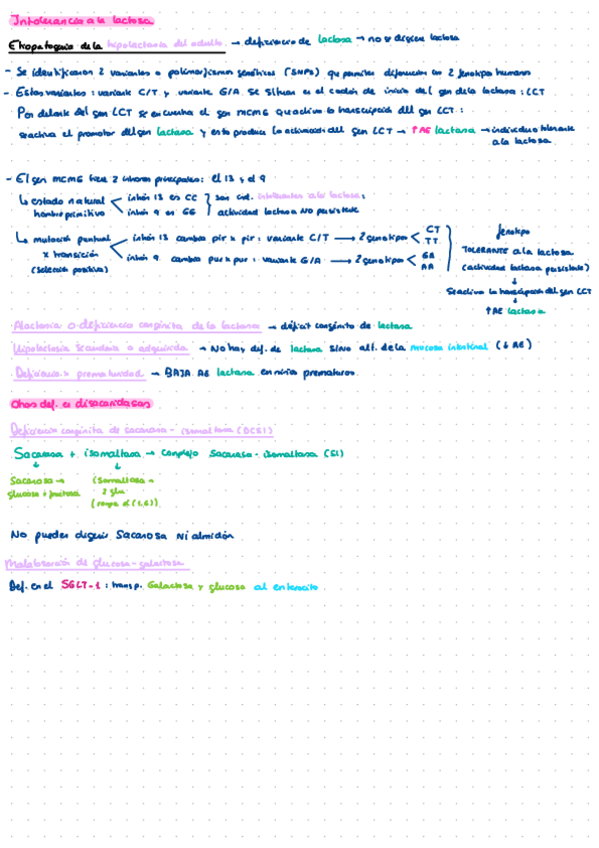 Intolerancia a la lactosa
Etiopatogenia de la hipolactasia del adulto → deficiencia de lactasa → no se digiere lactosa
- Se identificaron 2 variantes o polimorfismos genéticos (SNPs) que permiten diferenciar en 2 fenotipos humanos
- Estas variantes: variante C/T y variante G/A. Se sitúan en el codón de inicio del gen de la lactasa: LCT
Por delante del gen LCT se encuentra el gen MCM6 que activa la transcripción del gen LCT:
se activa el promotor del gen lactasa y esto produce la activación del gen LCT → ↑AE lactasa → individuo tolerante
a la lactosa.
- El gen MCM6 tiene 2 intrones principales: el 13 y el 9
↳ estado natural < intrón 13 es CC } son ind. intolerantes a la lactosa:
hombre primitivo intrón 9 es GG actividad lactasa NO persistente
↳ mutación puntual < intrón 13 cambia pir x pir: variante C/T → 2 genotipos < CT TT
x transición intrón 9 cambia pur x pur: variante G/A → 2 genotipos < GA AA
(selección positiva)
fenotipo
TOLERANTE a la lactosa
(actividad lactasa persistente)
↓
Se activa la transcripción del gen LCT
↓
↑AE lactasa
Alactasia o deficiencia congénita de la lactasa → déficit congénito de lactasa
Hipolactasia secundaria o adquirida → No hay def. de lactasa sino alt. de la mucosa intestinal (↓AE)
Deficiencia x prematuridad → BAJA AE lactasa en niños prematuros.
Otras def. en disacaridasas
Deficiencia congénita de sacarasa - isomaltasa (DCSI)
Sacarasa + isomaltasa → complejo sacarasa - isomaltasa (SI)
↓ ↓
Sacarosa → isomaltosa →
glucosa + fructosa 2 glu
(rompe α(1,6))
No pueden digerir Sacarosa ni almidón
Malabsorción de glucosa - galactosa
Def. en el SGLT-1: transp. Galactosa y glucosa al enterocito